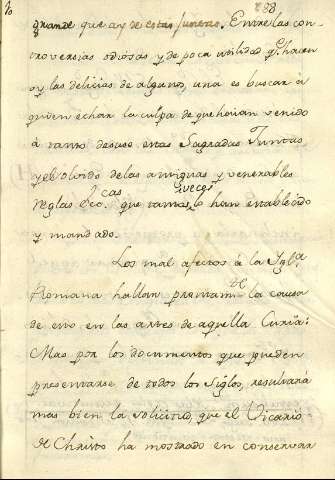 grande que ay de estas Juntas. Entre las con
troversias odiosas, y de poca utilidad qe. hacen
oy las delicias de algunos, una es buscar à
quien echar la culpa de que hàian venido
à tanto desuso estas Sagradas Juntas
y el olvido de las antiguas y venerables
reglas Ecc.cas que tantas veces lo han establecido
y mandado.
Los mal afectos à la Igla.
Romana hallan prontamte. la causa
de esto en las artes de aquella Curia:
Mas por los documentos que pueden
presentarse, de todos los Siglos, resultarà
mas bien la solicitud, que el Vicario
de Christo ha mostrado en conservar